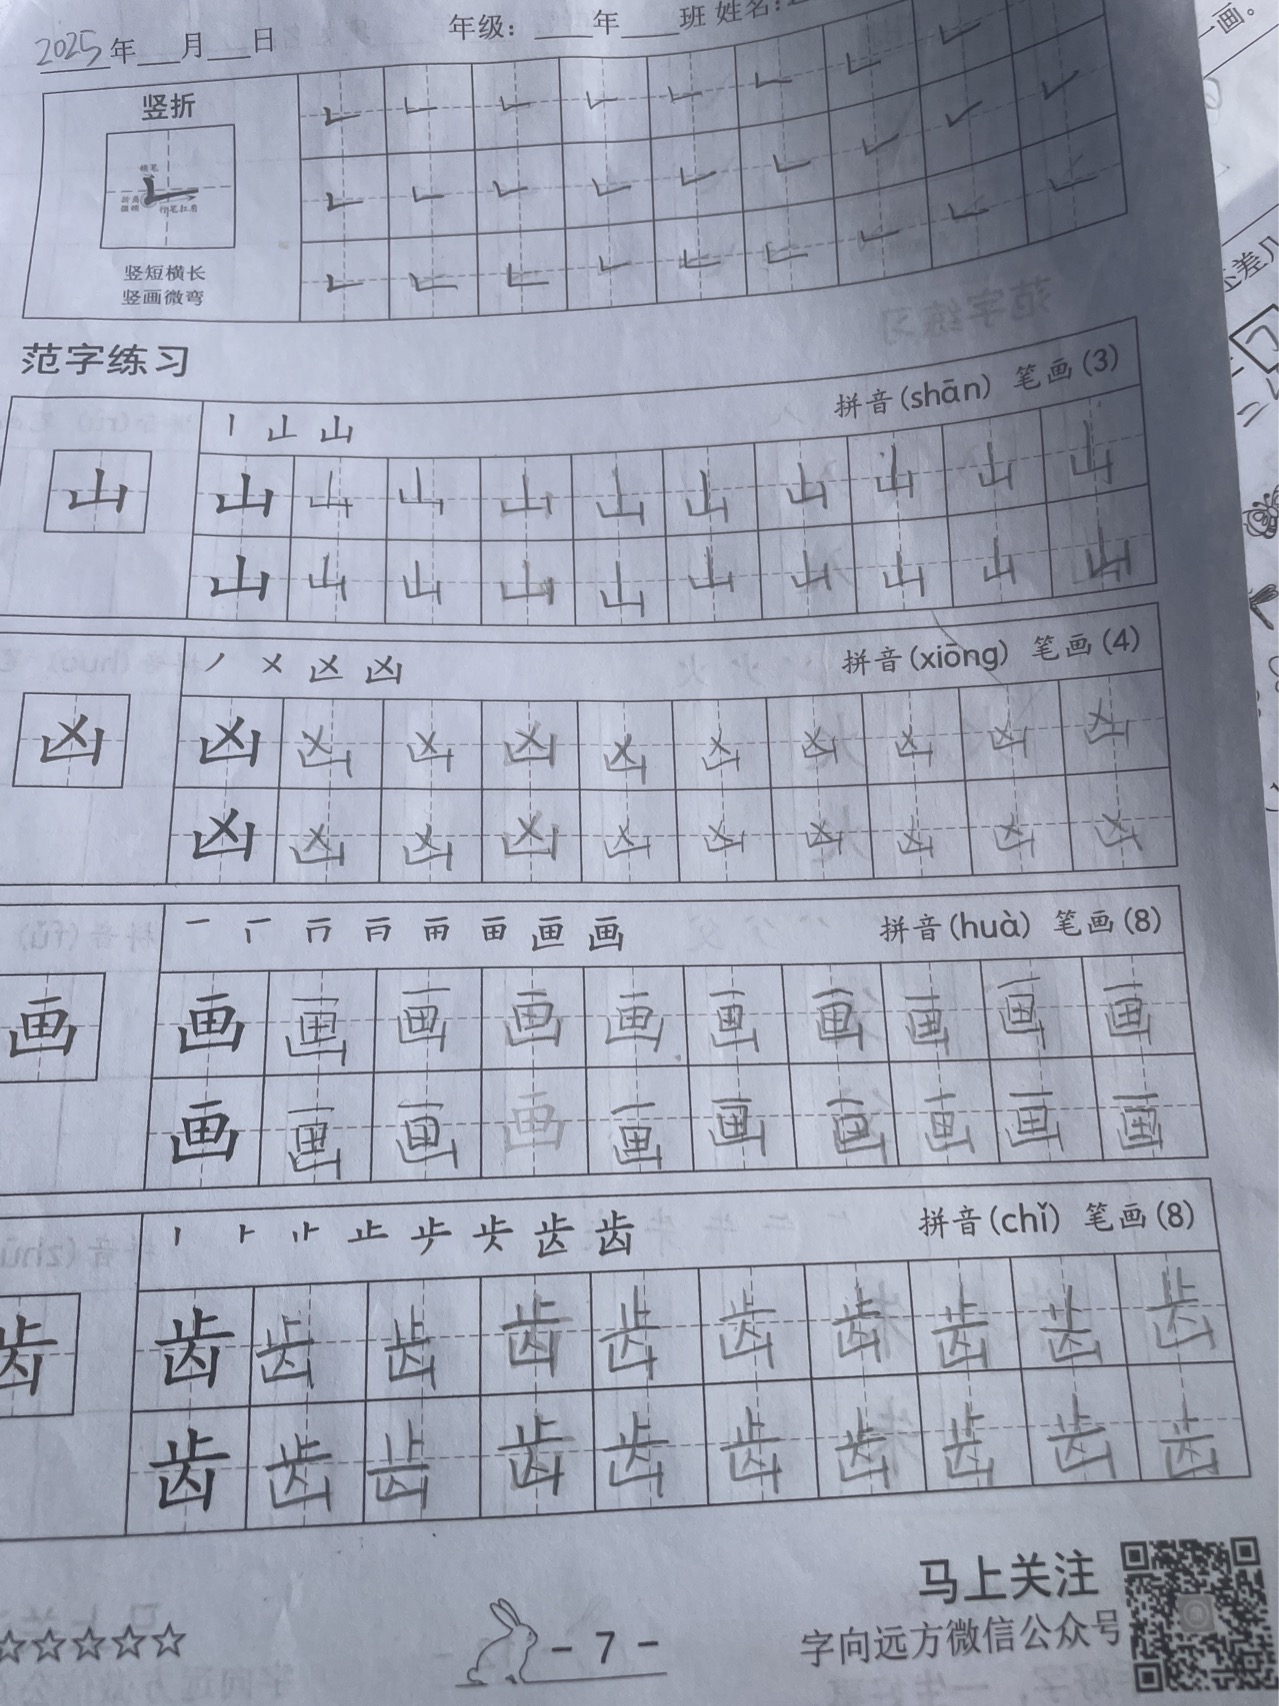 2025年 月 日 年级: 年 班 姓名:
竖折
竖短横长
竖画微弯
范字练习
丨 山 山 拼音(shān) 笔画(3)
山 山 山 山 山 山 山 山 山 山 山
山 山 山 山 山 山 山 山 山 山
丿 㐅 凶 凶 拼音(xiōng) 笔画(4)
凶 凶 凶 凶 凶 凶 凶 凶 凶 凶 凶
凶 凶 凶 凶 凶 凶 凶 凶 凶 凶
拼音(huà) 笔画(8)
画 画 画 画 画 画 画 画 画 画 画
画 画 画 画 画 画 画 画 画 画
拼音(chǐ) 笔画(8)
齿 齿 齿 齿 齿 齿 齿 齿 齿 齿 齿
齿 齿 齿 齿 齿 齿 齿 齿 齿 齿
马上关注
字向远方微信公众号
- 7 -